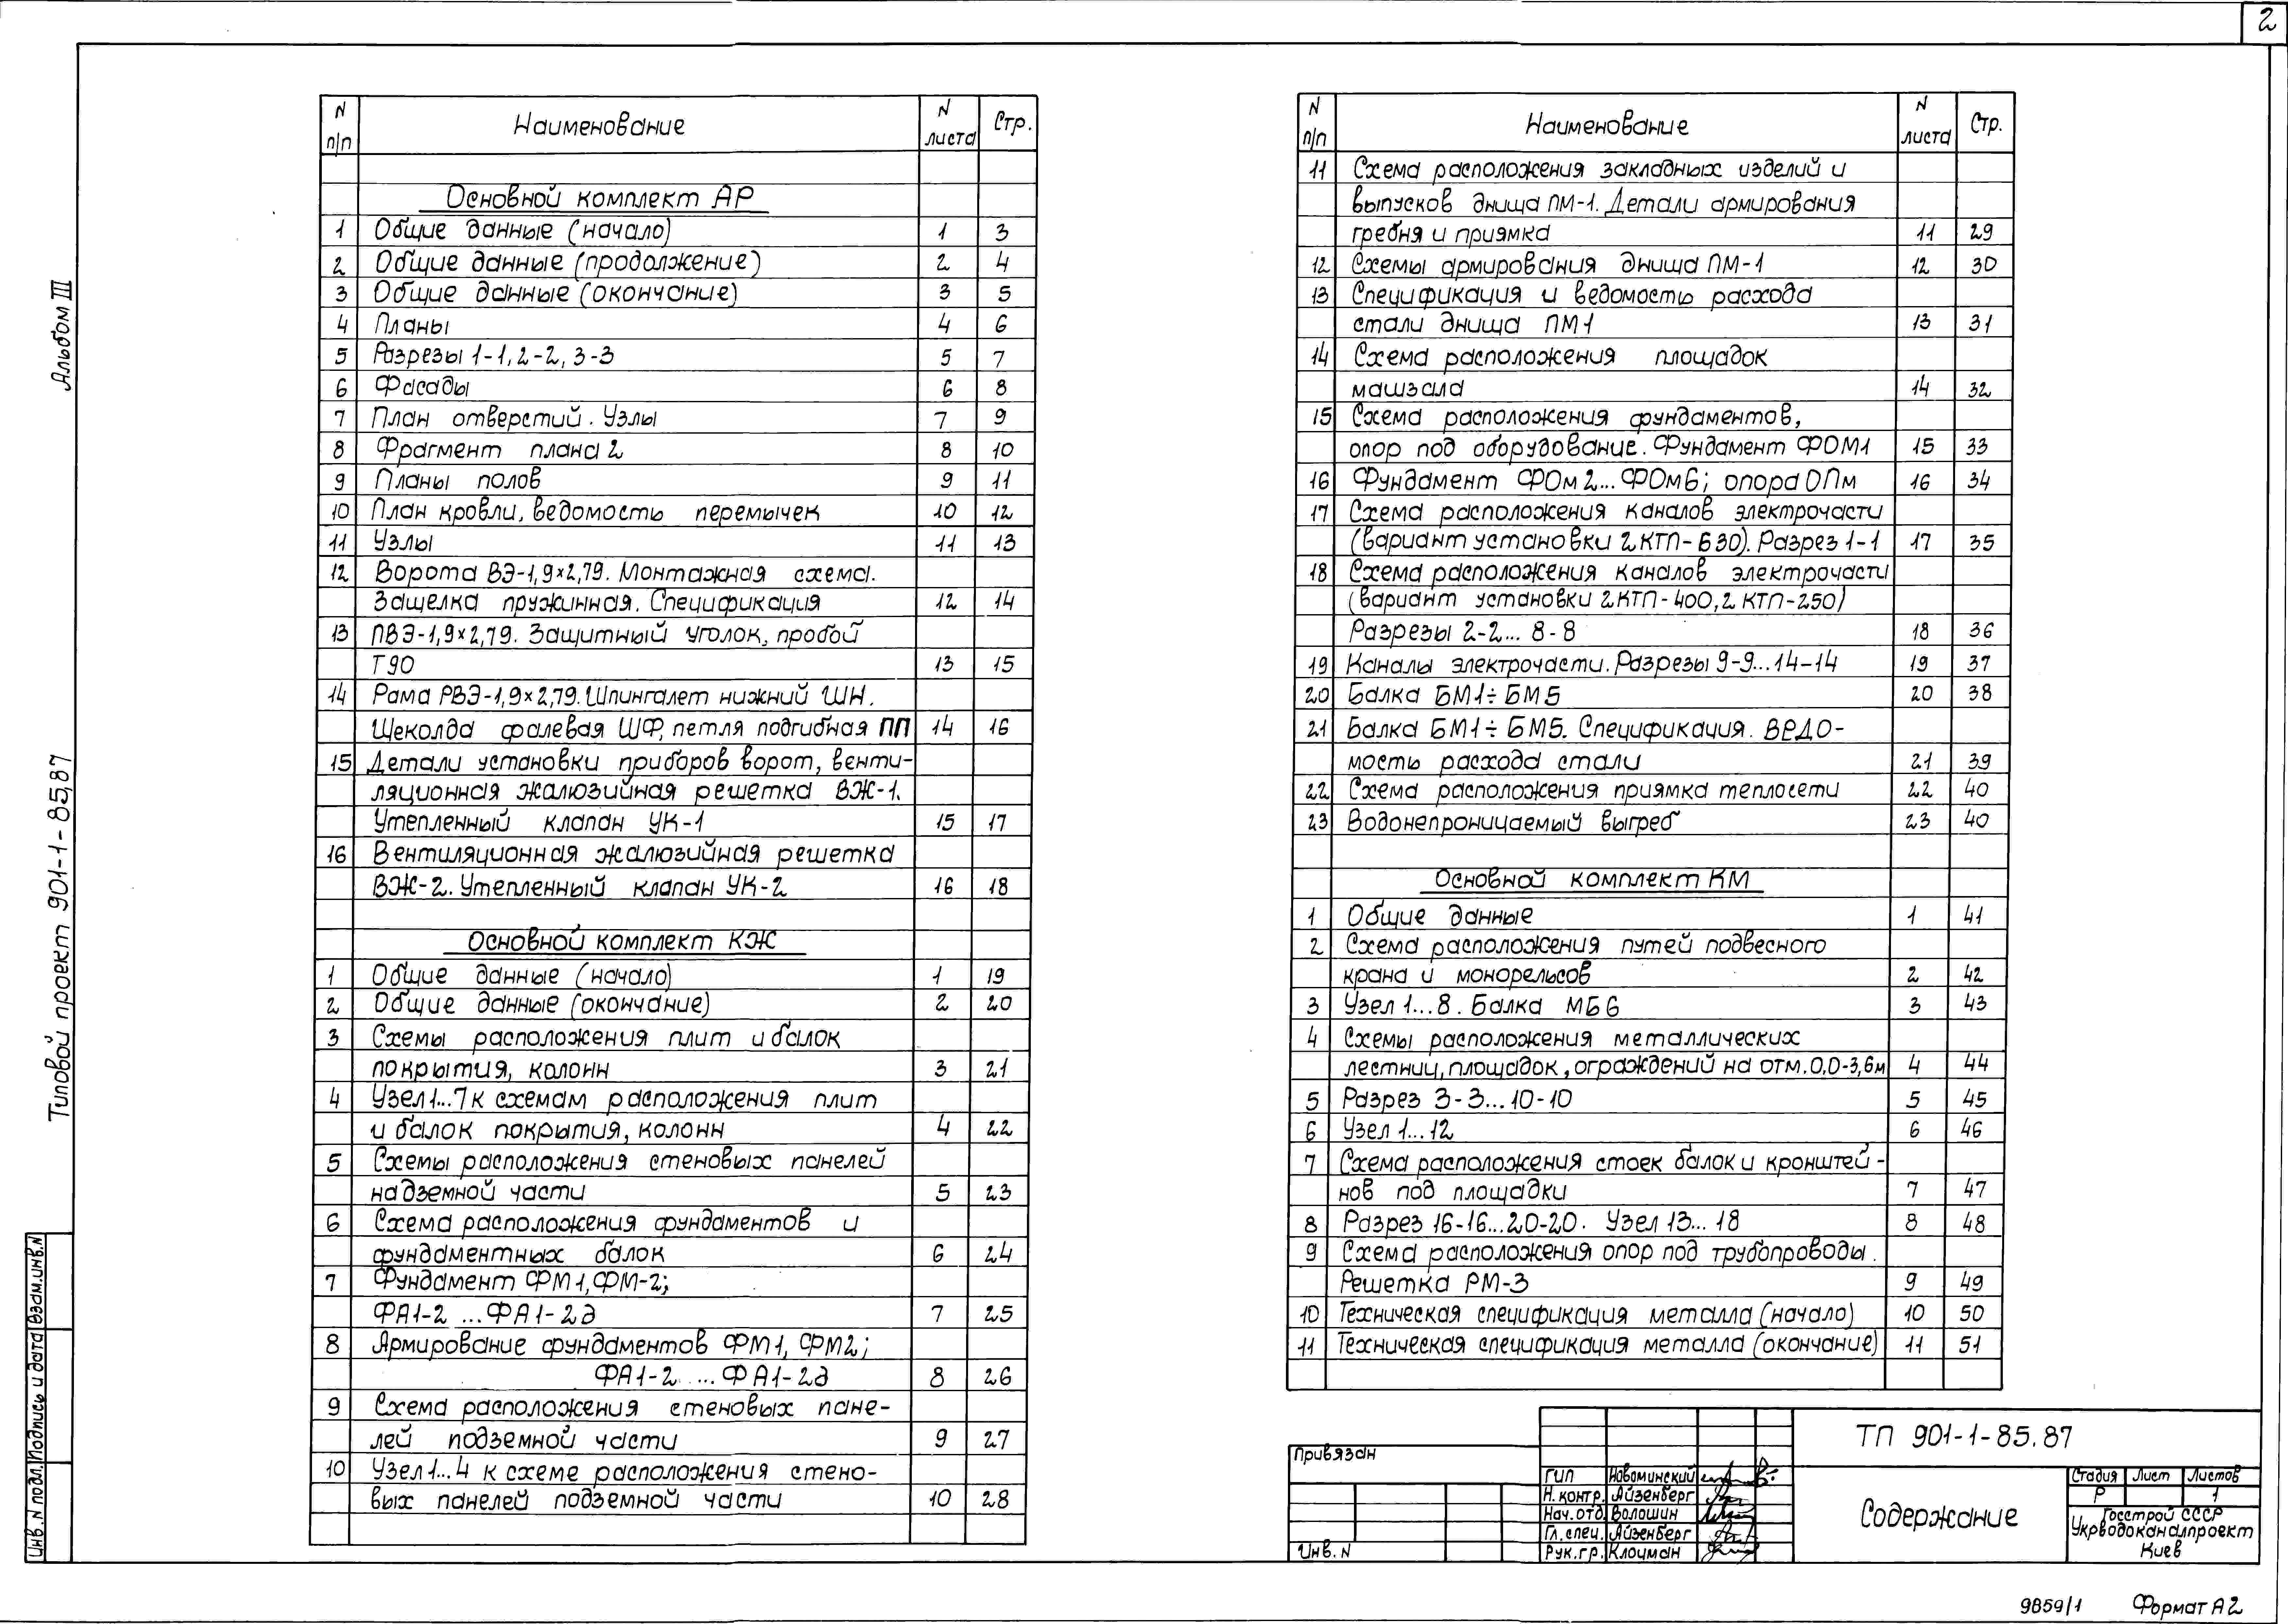 2
Альбом III
Типовой проект 901-1-85.87
Инв.N подл. Подпись и дата Взам.инв.N
N п/п Наименование N листа Стр.
Основной комплект АР
1 Общие данные (начало) 1 3
2 Общие данные (продолжение) 2 4
3 Общие данные (окончание) 3 5
4 Планы 4 6
5 Разрезы 1-1, 2-2, 3-3 5 7
6 Фасады 6 8
7 План отверстий. Узлы 7 9
8 Фрагмент плана 2 8 10
9 Планы полов 9 11
10 План кровли, ведомость перемычек 10 12
11 Узлы 11 13
12 Ворота ВЭ-1,9×2,79. Монтажная схема.
Защелка пружинная. Спецификация 12 14
13 ПВЭ-1,9×2,79. Защитный уголок, пробой
Т90 13 15
14 Рама РВЭ-1,9×2,79. Шпингалет нижний ШН.
Щеколда фалевая ШФ, петля подгибная ПП 14 16
15 Детали установки приборов ворот, венти-
ляционная жалюзийная решетка ВЖ-1.
Утепленный клапан УК-1 15 17
16 Вентиляционная жалюзийная решетка
ВЖ-2. Утепленный клапан УК-2 16 18
Основной комплект КЖ
1 Общие данные (начало) 1 19
2 Общие данные (окончание) 2 20
3 Схемы расположения плит и балок
покрытия, колонн 3 21
4 Узел 1...7 к схемам расположения плит
и балок покрытия, колонн 4 22
5 Схемы расположения стеновых панелей
надземной части 5 23
6 Схема расположения фундаментов и
фундаментных балок 6 24
7 Фундамент ФМ1, ФМ-2;
ФА1-2 ... ФА1-2д 7 25
8 Армирование фундаментов ФМ1, ФМ2;
ФА1-2 ... ФА1-2д 8 26
9 Схема расположения стеновых пане-
лей подземной части 9 27
10 Узел 1...4 к схеме расположения стено-
вых панелей подземной части 10 28
N п/п Наименование N листа Стр.
11 Схема расположения закладных изделий и
выпусков днища ПМ-1. Детали армирования
гребня и приямка 11 29
12 Схемы армирования днища ПМ-1 12 30
13 Спецификация и ведомость расхода
стали днища ПМ1 13 31
14 Схема расположения площадок
машзала 14 32
15 Схема расположения фундаментов,
опор под оборудование. Фундамент ФОМ1 15 33
16 Фундамент ФОм2...ФОм6; опора ОПм 16 34
17 Схема расположения каналов электрочасти
(вариант установки 2КТП-630). Разрез 1-1 17 35
18 Схема расположения каналов электрочасти
(вариант установки 2КТП-400, 2КТП-250)
Разрезы 2-2... 8-8 18 36
19 Каналы электрочасти. Разрезы 9-9...14-14 19 37
20 Балка БМ1÷БМ5 20 38
21 Балка БМ1÷БМ5. Спецификация. Ведо-
мость расхода стали 21 39
22 Схема расположения приямка теплосети 22 40
23 Водонепроницаемый выгреб 23 40
Основной комплект КМ
1 Общие данные 1 41
2 Схема расположения путей подвесного
крана и монорельсов 2 42
3 Узел 1...8. Балка МБ6 3 43
4 Схемы расположения металлических
лестниц, площадок, ограждений на отм.0,0-3,6м 4 44
5 Разрез 3-3...10-10 5 45
6 Узел 1...12 6 46
7 Схема расположения стоек балок и кронштей-
нов под площадки 7 47
8 Разрез 16-16...20-20. Узел 13...18 8 48
9 Схема расположения опор под трубопроводы.
Решетка РМ-3 9 49
10 Техническая спецификация металла (начало) 10 50
11 Техническая спецификация металла (окончание) 11 51
Привязан
Инв. N
ГИП Новоминский
Н.контр. Айзенберг
Нач.отд. Волошин
Гл.спец. Айзенберг
Рук.гр. Клоцман
ТП 901-1-85.87
Содержание
Стадия Лист Листов
Р 1
Госстрой СССР
Укрводоканалпроект
Киев
9859/1 Формат А2